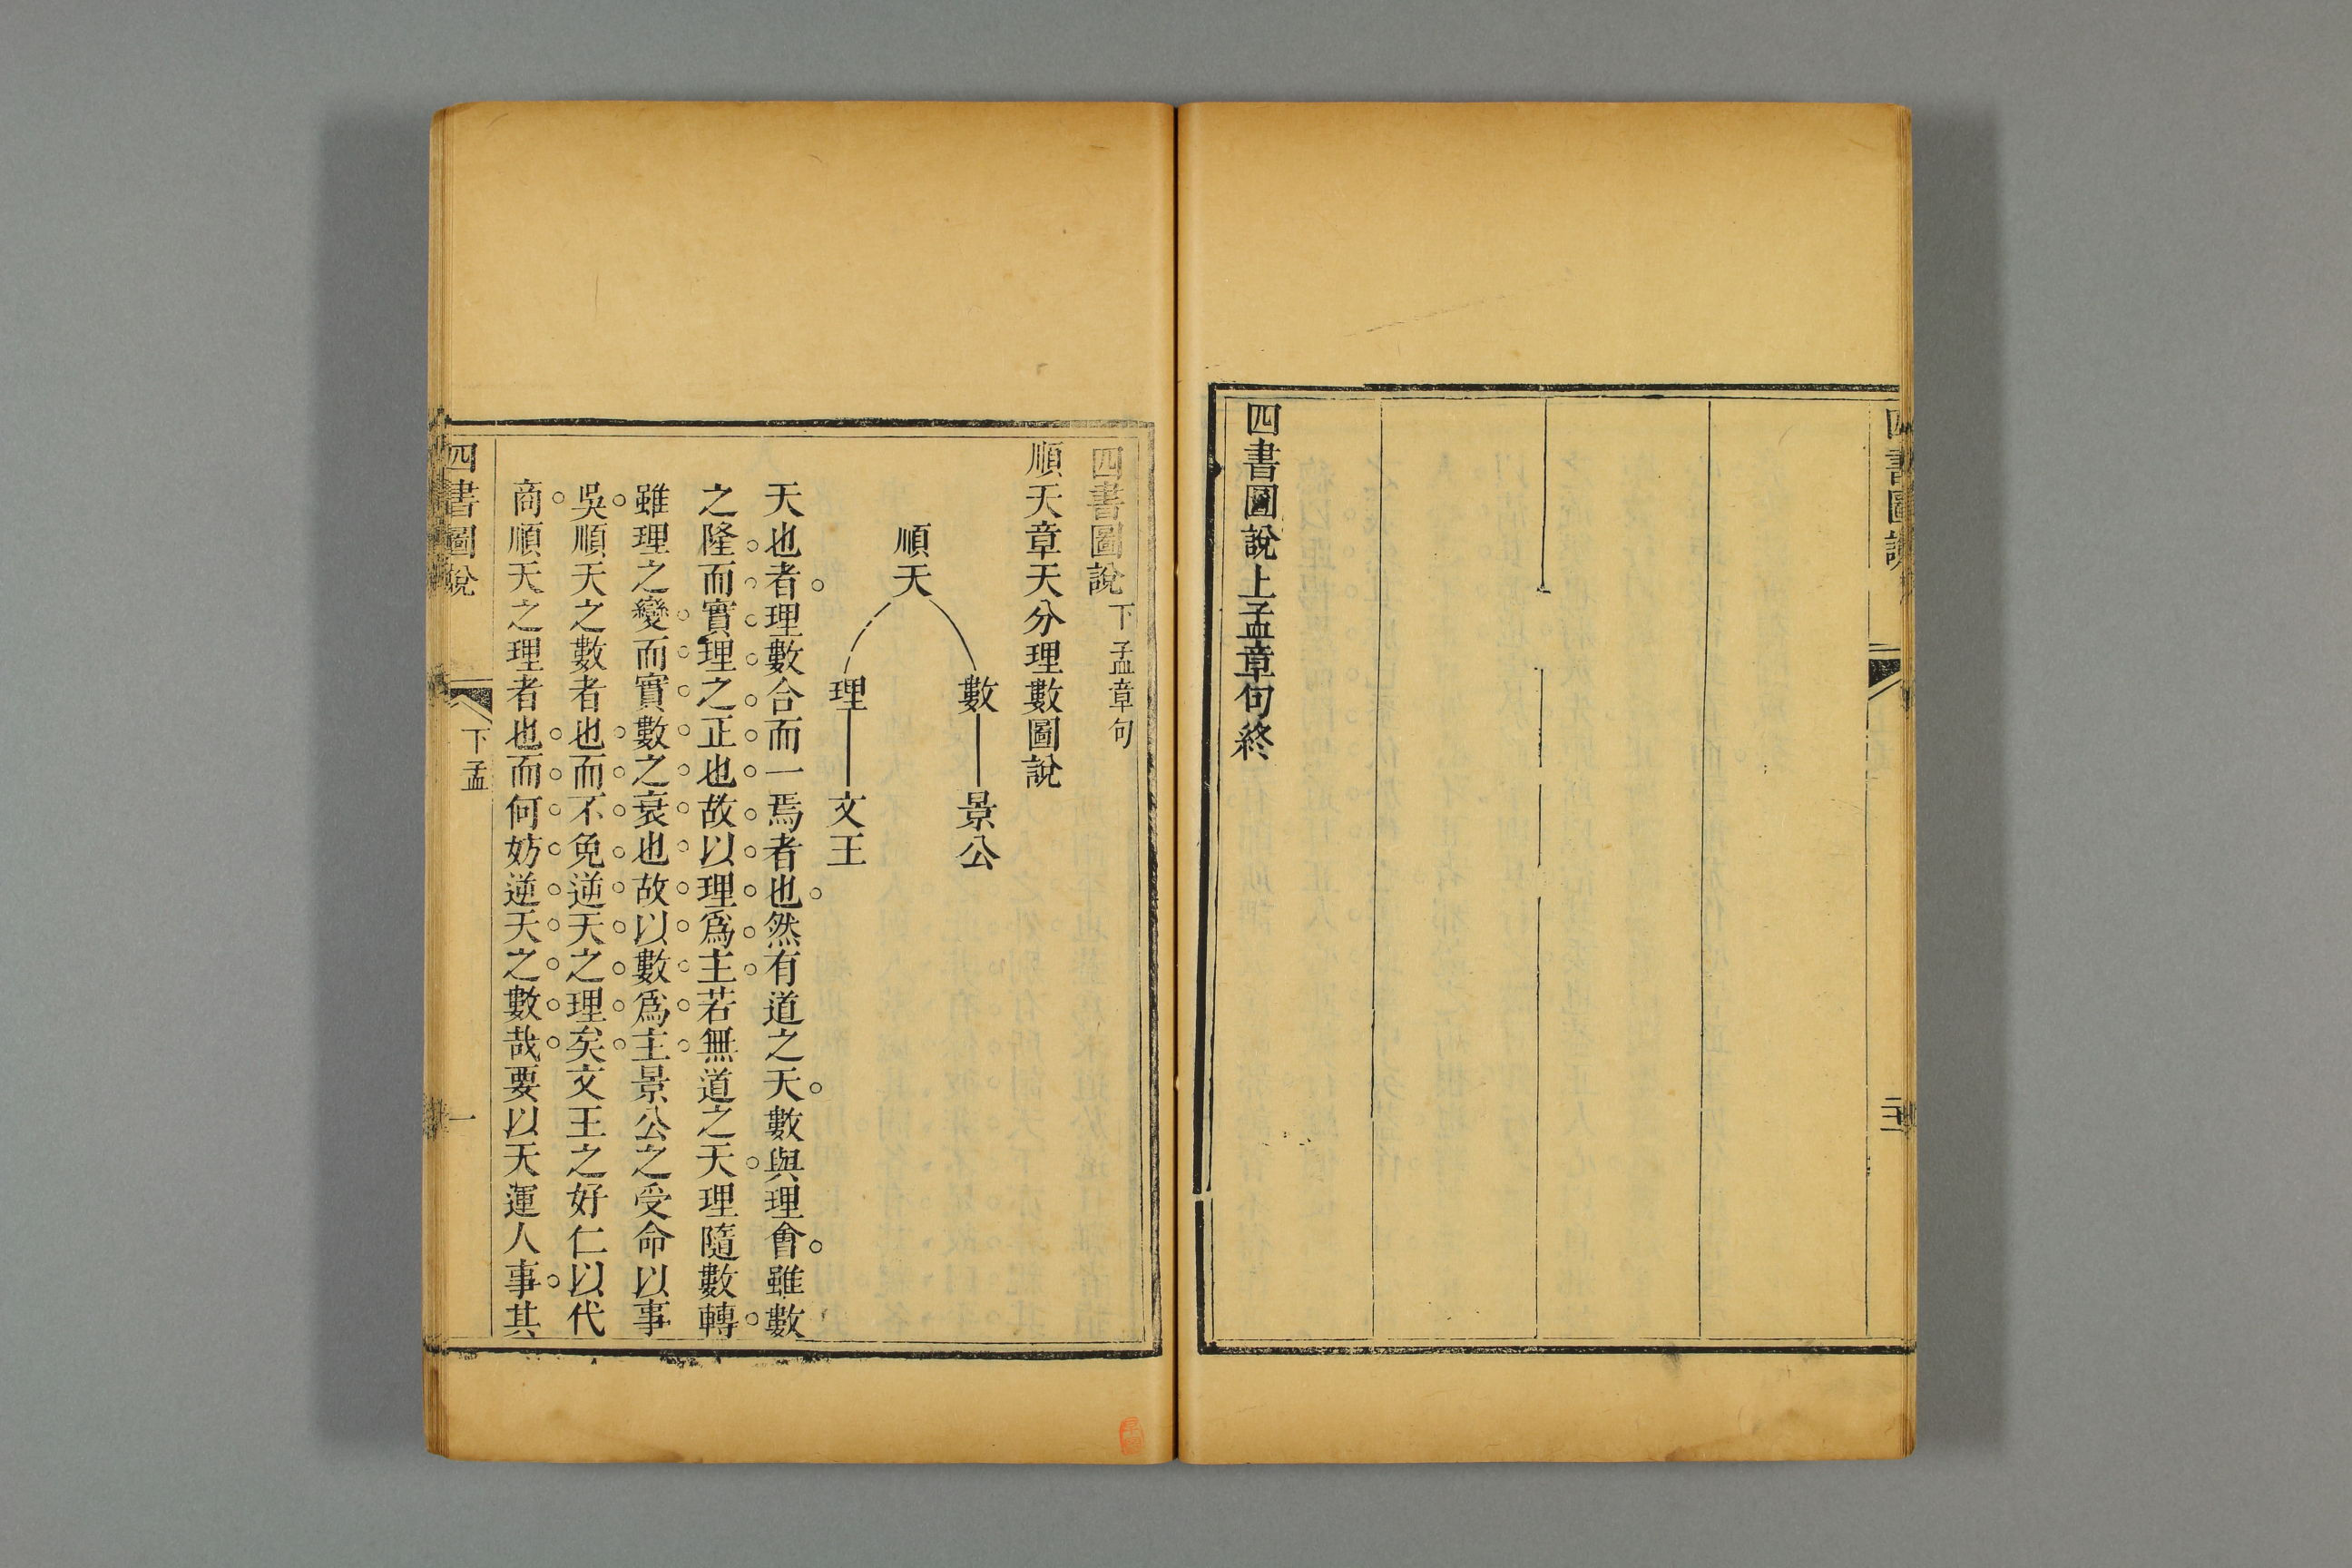 四書圖說
四書圖說上孟章句終
四書圖說下孟章句
順天章天分理數圖說
順天
數 景公
理 文王
天也者理數合而一焉者也然有道之天數與理會雖數
之隆而實理之正也故以理爲主若無道之天理隨數轉
雖理之變而實數之衰也故以數爲主景公之受命以事
吳順天之數者也而不免逆天之理矣文王之好仁以代
商順天之理者也而何妨逆天之數哉要以天運人事其
四書圖說
下孟
一